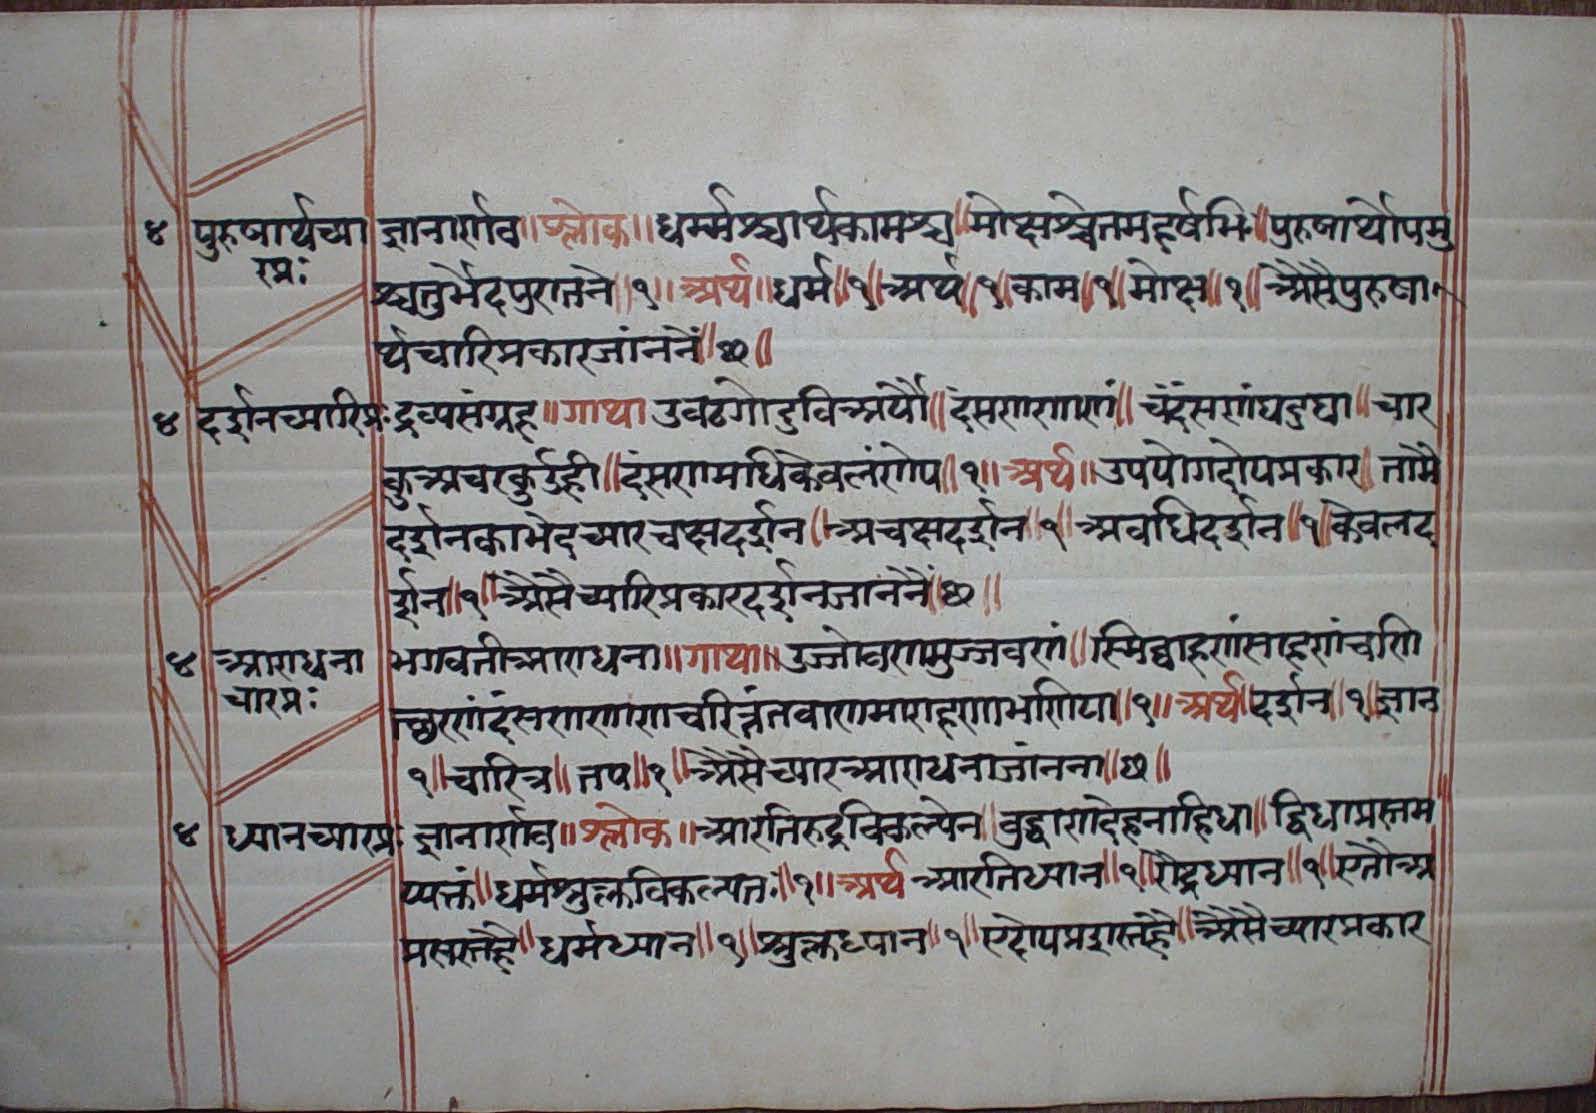 ४ पुरुषार्थच्या ज्ञानार्णव॥श्लोक॥धर्म्मश्चार्थकामश्च॥मोक्षश्चेतमहर्षभि॥पुरुषार्थोपमु
रप्र: श्चतुर्भेदपुरातनै॥१॥अर्थ॥धर्म॥१॥अर्थ॥१॥काम॥१॥मोक्ष॥१॥अैसैपुरुषा
र्थचारिप्रकारजांननैं॥छ॥
४ दर्शनच्यारिप्र: द्रव्यसंग्रह॥गाथा उवटगोदुविअर्पो॥दंसणणाणं॥चदंसणंचदुधा॥चार
दंसणमधिकेवलंणेप॥१॥अर्थ॥उपयोगदोपप्रकार॥तामै
दर्शनकाभेदच्यारचक्षदर्शन॥अचक्षदर्शन॥१॥अवधिदर्शन॥१॥केवलद
र्शन॥१॥अैसैच्यारिप्रकारदर्शनजाननैं॥छ॥
४ आराधना भगवतीआराधना॥गाथा॥उज्जोवणमुज्जवणं॥
चारप्र: १॥अर्थ॥दर्शन॥१॥ज्ञान
१॥चारित्र॥तप॥१॥अैसैच्यारआराधनाजांनना॥छ॥
४ ध्यानच्यारप्र: ज्ञानार्णव॥श्लोक॥आरतिरुद्रविकल्पेन॥द्विधाप्रस्तम
प्यक्तं॥धर्मशुक्लविकल्पत:॥१॥अर्थ आरतिध्यान॥१॥रौद्रध्यान॥१॥एतौअ
प्रसस्तहै॥धर्मध्यान॥१॥शुक्लध्यान॥१॥एदोपप्रशस्तहै॥अैसैच्यारप्रकार